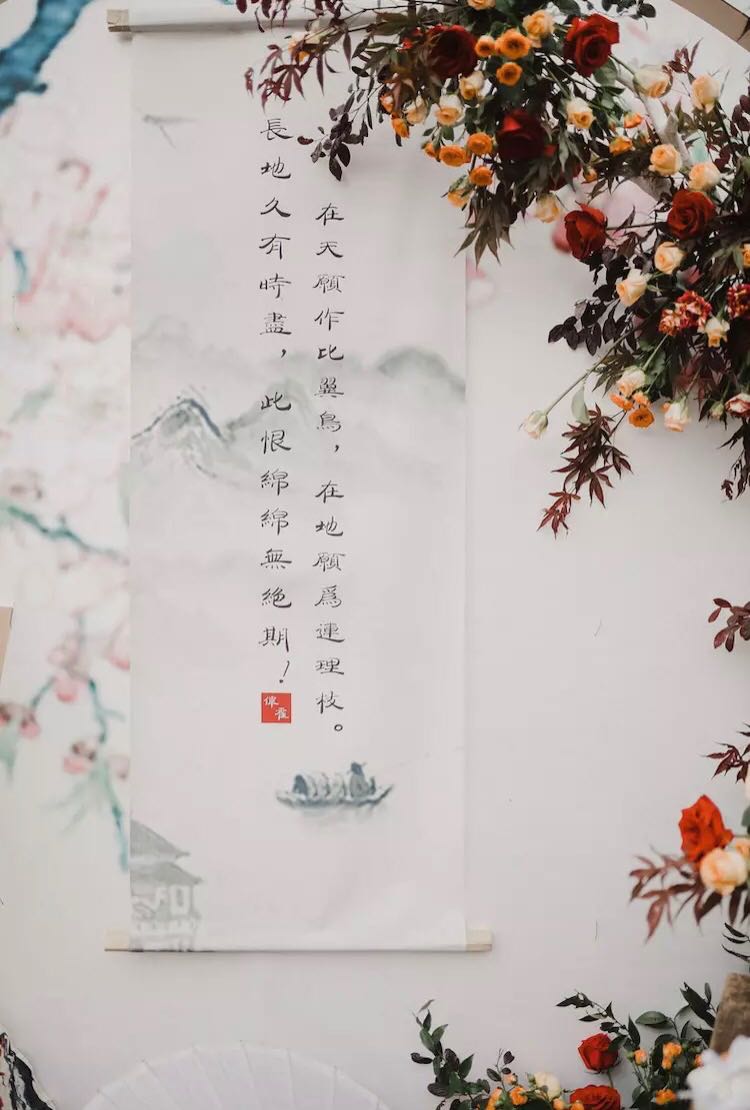 在天願作比翼鳥，在地願爲連理枝。
長地久有時盡，此恨綿綿無絶期！